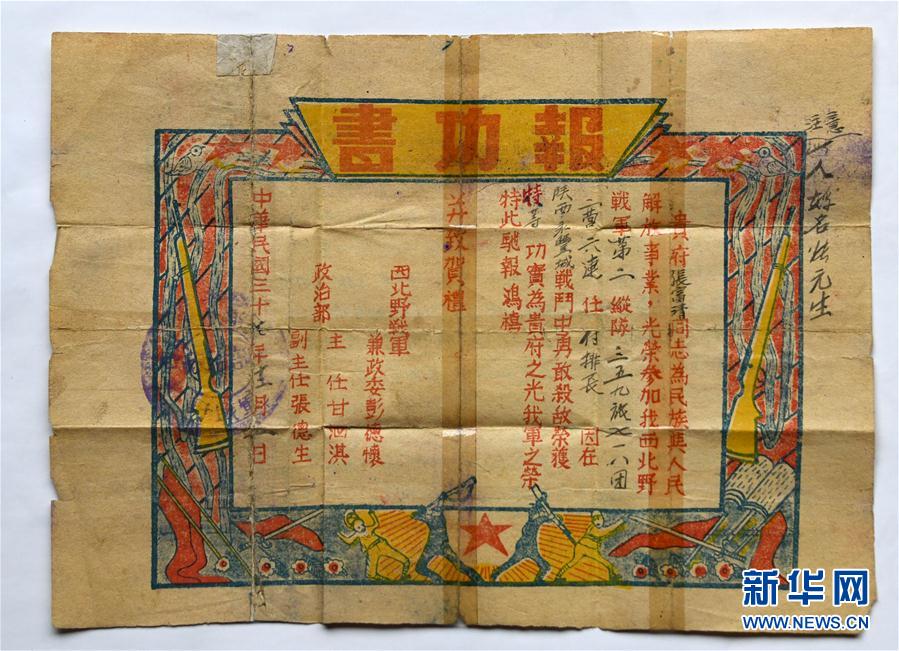 報功書
貴府張富清同志為民族與人民
解放事業，光榮參加我西北野
戰軍第二縱隊三五九旅七一八团
二营六連任付排長因在
陕西永豐城戰鬥中勇敢殺敌榮獲
特等功實為貴府之光我軍之榮
特此馳報鴻禧
并致賀禮
西北野戰軍
兼政委彭德懷
政治部
主任甘泗淇
副主任張德生
中華民國三十七年十二月日
注意
此人姓名张元生
新华网
WWW.NEWS.CN